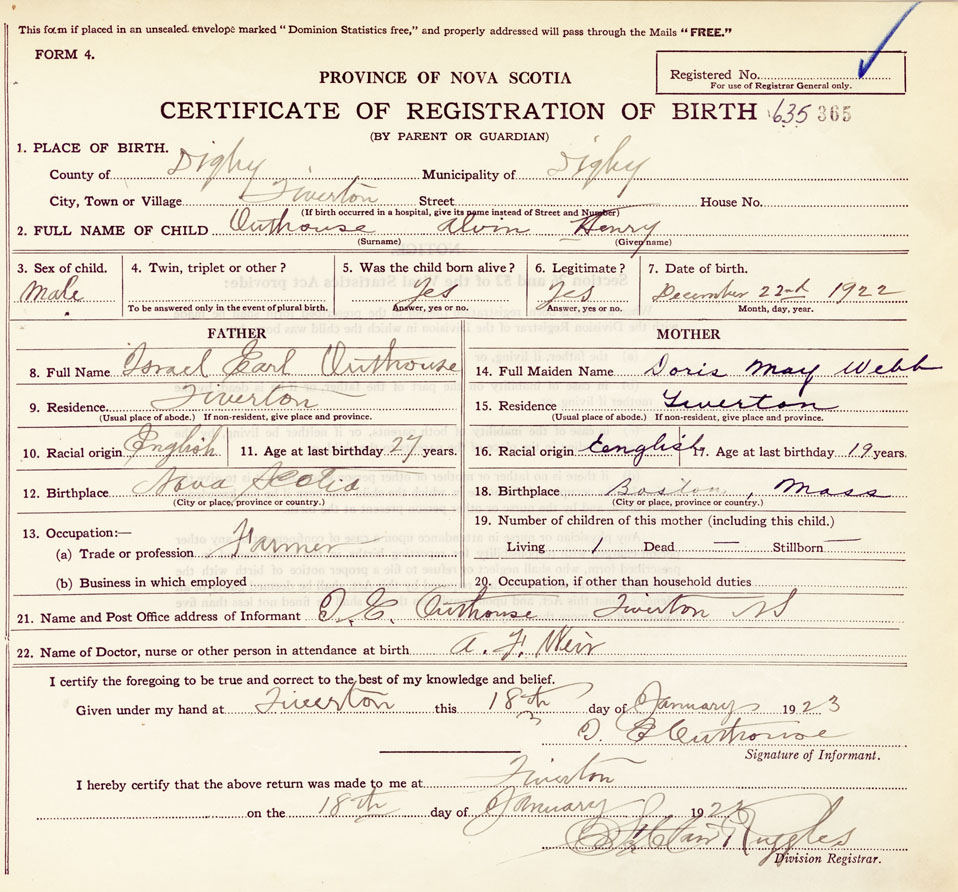 This form if placed in an unsealed envelope marked "Dominion Statistics free," and properly addressed will pass through the Mails "FREE."
FORM 4.
Registered No.
For use of Registrar General only.
PROVINCE OF NOVA SCOTIA
CERTIFICATE OF REGISTRATION OF BIRTH 635 365
(BY PARENT OR GUARDIAN)
1. PLACE OF BIRTH.
County of Digby Municipality of Digby
City, Town or Village Tiverton Street House No.
(If birth occurred in a hospital, give its name instead of Street and Number)
2. FULL NAME OF CHILD Outhouse Alvin Henry
(Surname) (Given name)
3. Sex of child. 4. Twin, triplet or other? 5. Was the child born alive? 6. Legitimate? 7. Date of birth.
Male Yes Yes December 22nd 1922
To be answered only in the event of plural birth. Answer, yes or no. Answer, yes or no. Month, day, year.
FATHER MOTHER
8. Full Name Israel Earl Outhouse 14. Full Maiden Name Doris May Webb
9. Residence. Tiverton 15. Residence Tiverton
(Usual place of abode.) If non-resident, give place and province. (Usual place of abode.) If non-resident, give place and province.
10. Racial origin English 11. Age at last birthday 27 years. 16. Racial origin English 17. Age at last birthday 19 years.
12. Birthplace Nova Scotia 18. Birthplace Boston, Mass
(City or place, province or country.) (City or place, province or country.)
13. Occupation:— 19. Number of children of this mother (including this child.)
(a) Trade or profession Farmer Living 1 Dead — Stillborn —
(b) Business in which employed 20. Occupation, if other than household duties
21. Name and Post Office address of Informant I. E. Outhouse Tiverton NS
22. Name of Doctor, nurse or other person in attendance at birth A. F. Weir
I certify the foregoing to be true and correct to the best of my knowledge and belief.
Given under my hand at Tiverton this 18th day of January 1923
I. E Outhouse
Signature of Informant.
I hereby certify that the above return was made to me at Tiverton
on the 18th day of January 192
Ruggles
Division Registrar.